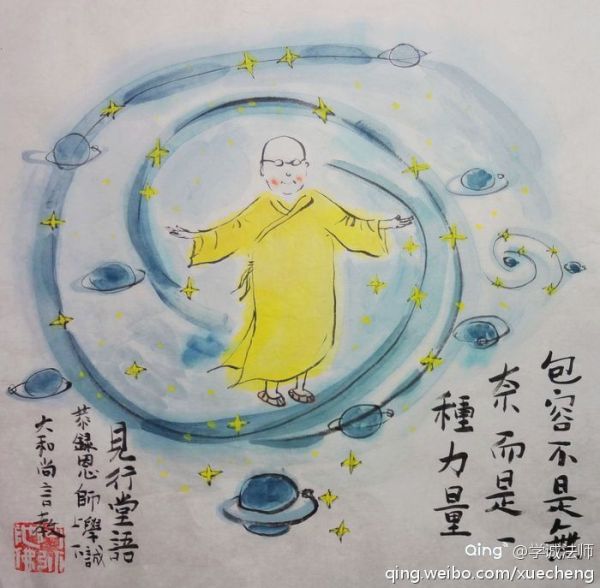 包容不是無
奈而是一
種力量
見行堂語
恭錄恩師學誠
大和尚言教
Qing @学诚法师
qing.weibo.com/xuecheng